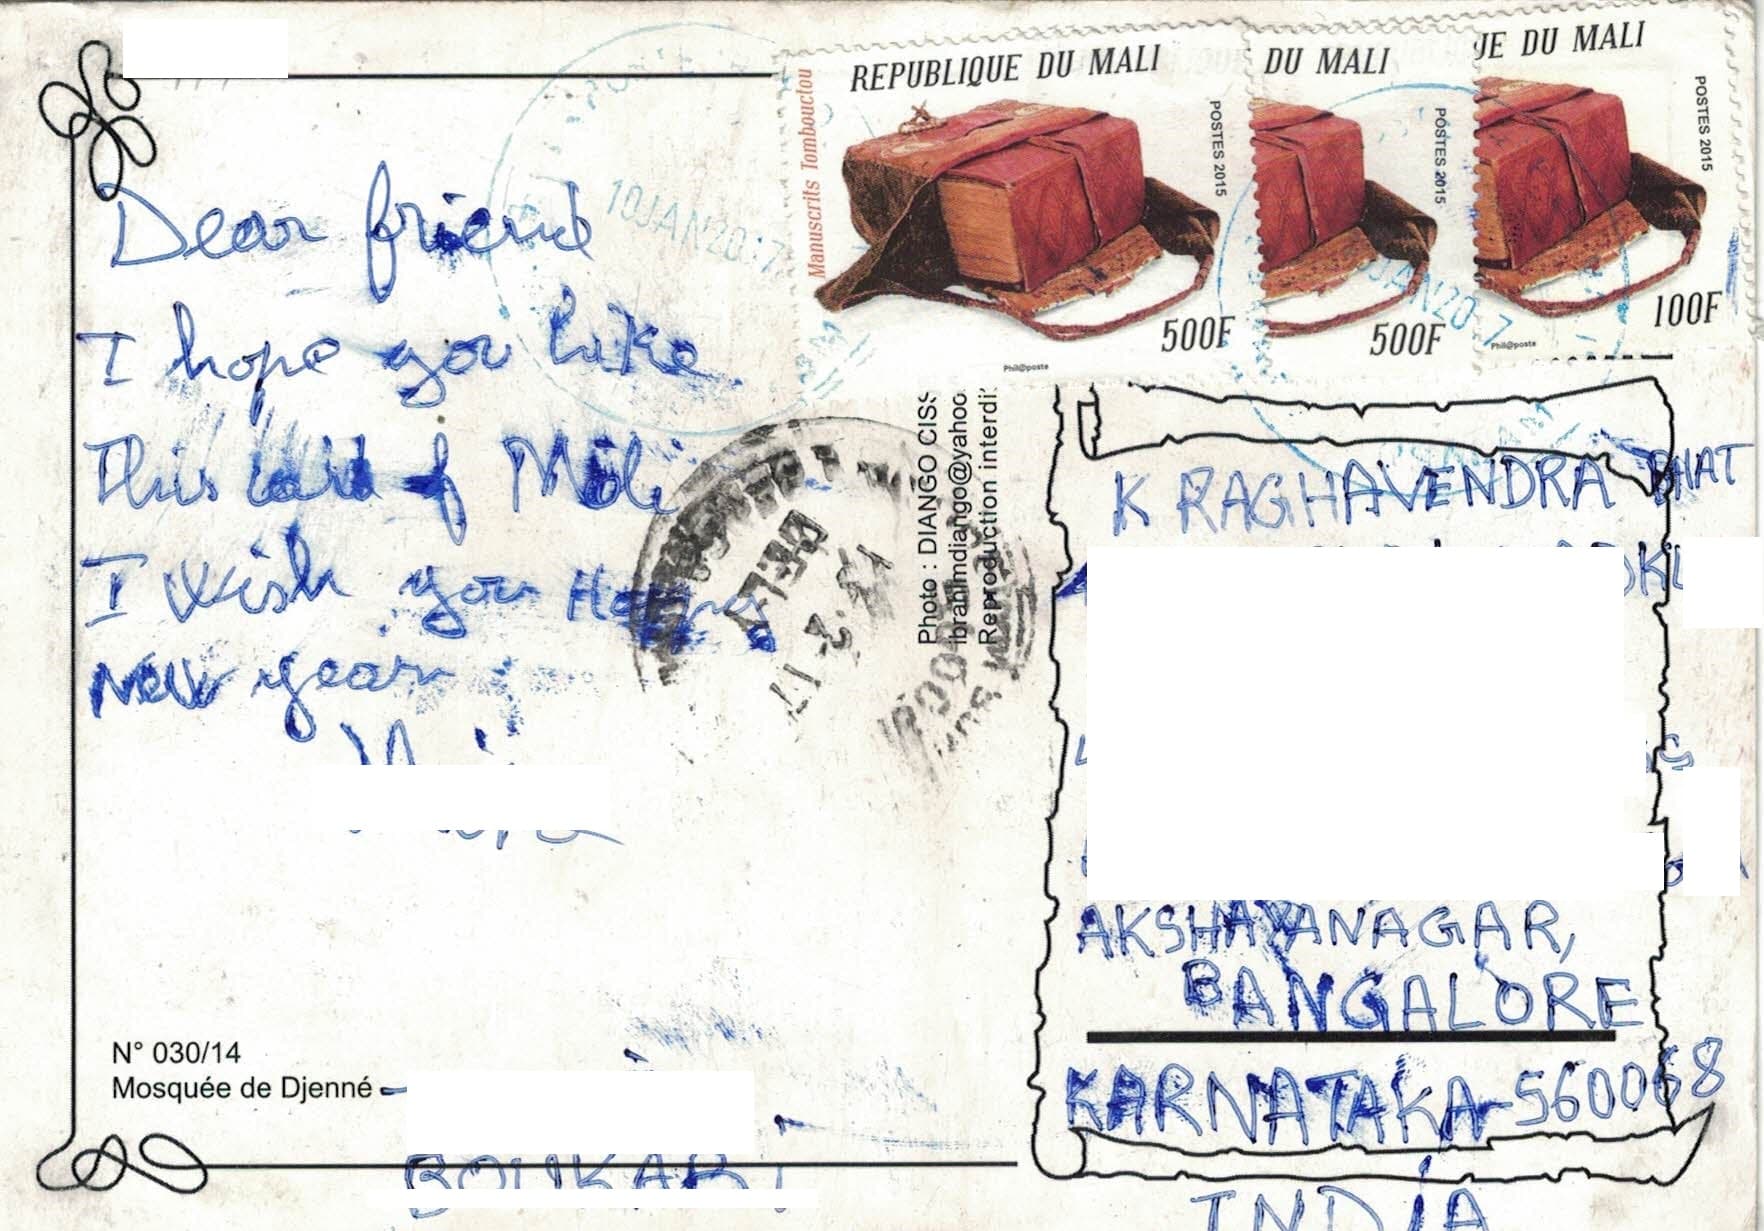 Dear friend
I hope you like
This card of Mali
I wish you Happy
New year
N° 030/14
Mosquée de Djenné
BOUKARI
REPUBLIQUE DU MALI
Manuscrits Tombouctou
POSTES 2015
500F
Phil@poste
DU MALI
POSTES 2015
500F
UE DU MALI
POSTES 2015
100F
Phil@poste
10JAN2017
JAN20 7
DELY
2 17
Photo : DIANGO CISS
ibrahimdiango@yahoo
Reproduction interdi
K RAGHAVENDRA BHAT
AKSHAYANAGAR,
BANGALORE
KARNATAKA-560068
INDIA